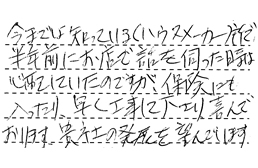 今までは知っているハウスメーカー位で
半年前にお店で話を伺った時は
心配していたのですが保険にも
入ったり、早く工事して下さり喜んで
おります。貴社の発展を望んでいます。